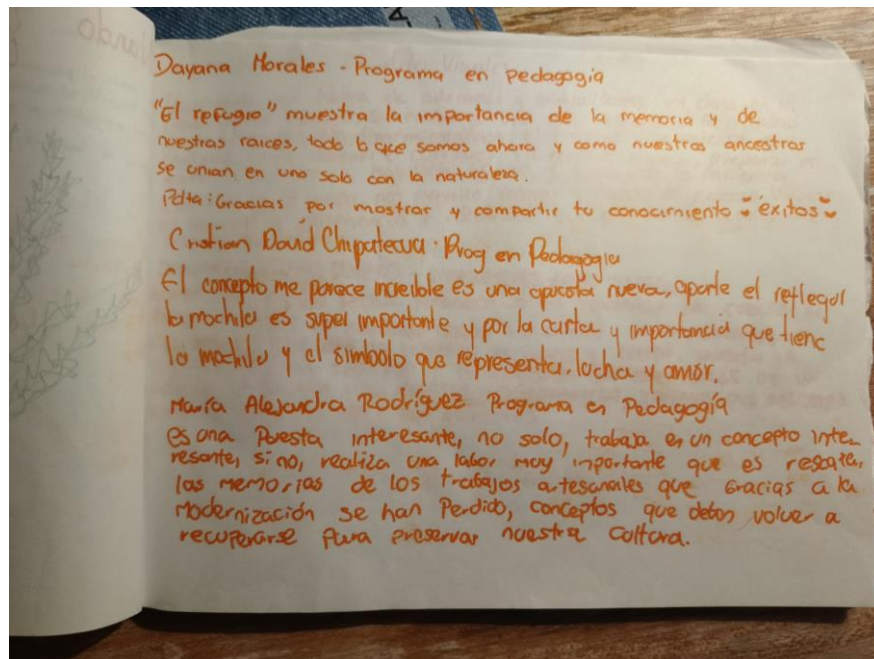 Dayana Morales - Programa en pedagogia
"El refugio" muestra la importancia de la memoria y de
nuestras raices, todo lo que somos ahora y como nuestros ancestros
se unian en uno solo con la naturaleza.
Pdta: Gracias por mostrar y compartir tu conocimiento éxitos
Cristian David Chipatecua. Prog en Pedagogia
El concepto me parece increible es una apuesta nueva, aparte el reflejar
la mochila es super importante y por la carta y importancia que tiene
la mochila y el simbolo que representa. lucha y amor.
María Alejandra Rodríguez Programa en Pedagogía
es una Puesta interesante, no solo, trabaja en un concepto inte-
resante, si no, realiza una labor muy importante que es rescatar,
las memorias de los trabajos artesanales que Gracias a la
Modernización se han Perdido, conceptos que deben volver a
recuperarse Para preservar nuestra cultura.